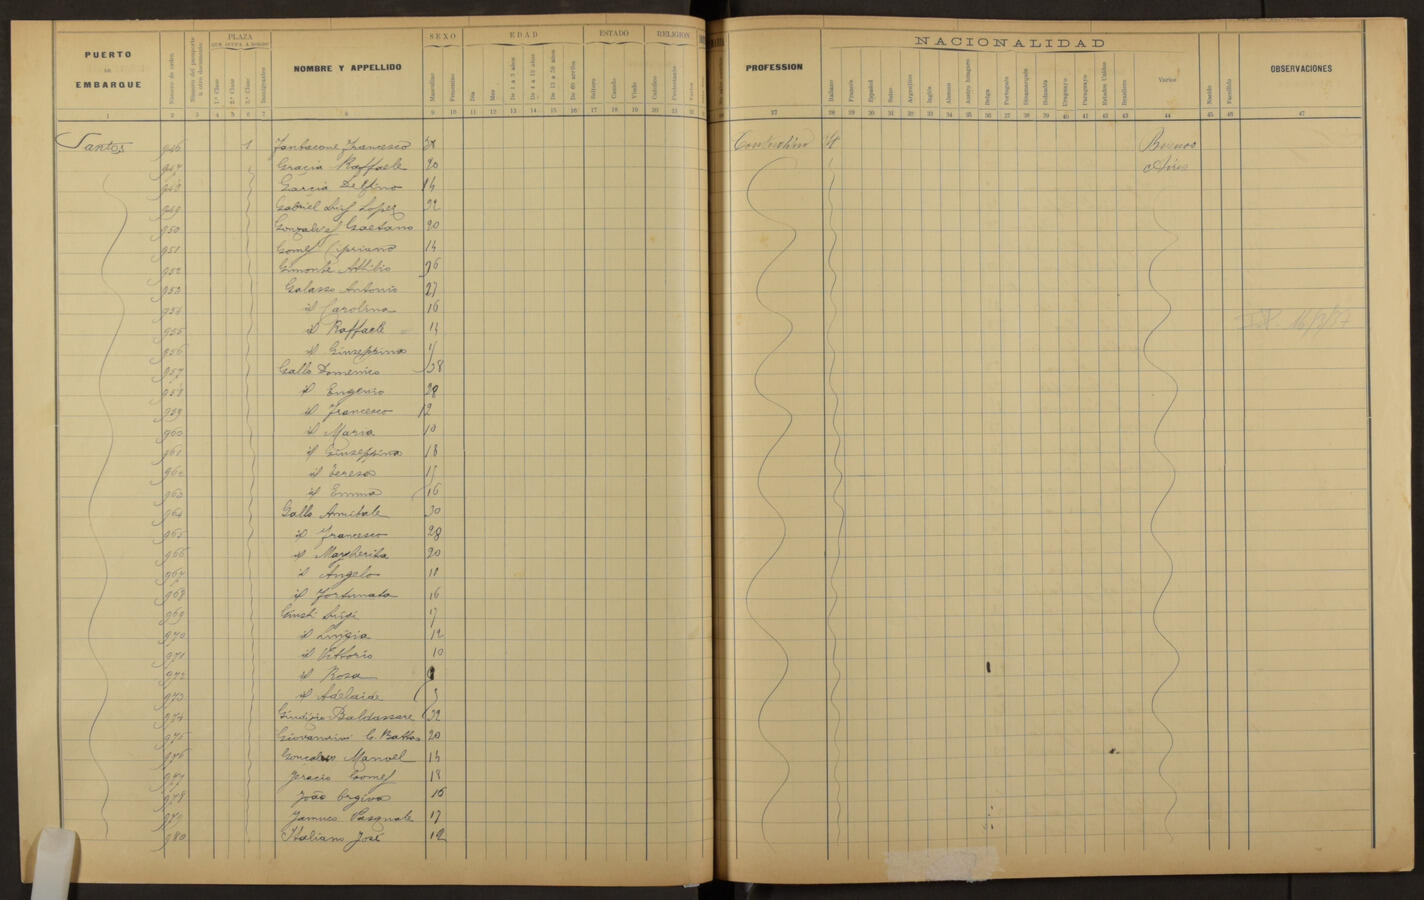 PUERTO
DE
EMBARQUE
Número de orden
Número del pasaporte ú otro documento
PLAZA
QUE OCUPA A BORDO
1.ª Clase
2.ª Clase
3.ª Clase
Inmigrantes
NOMBRE Y APPELLIDO
SEXO
Masculino
Femenino
EDAD
Dia
Mes
De 1 a 3 años
De 4 a 12 años
De 13 a 59 años
De 60 arriba
ESTADO
Soltero
Casado
Viudo
RELIGION
Catolico
Protestante
Varios
PROFESSION
NACIONALIDAD
Italiano
Francés
Español
Suizo
Argentino
Inglés
Alemán
Austro húngaro
Belga
Portugués
Dinamarqués
Holandés
Uruguayo
Paraguayo
Estados Unidos
Brasilero
Varios
Nacido
Fallecido
OBSERVACIONES
1 2 3 4 5 6 7 8 9 10 11 12 13 14 15 16 17 18 19 20 21 22 27 28 29 30 31 32 33 34 35 36 37 38 39 40 41 42 43 44 45 46 47
Santos 946 1 Fantacone Francesco It Buenos
947 Gracia Raffaele 20 Aires
948 Garcia Delfino 14
949 Gabriel Luis Lopez 32
950 Gaetano 20
951 Gomes Cipriano 14
952 Gimonte Attilio 26
953 Galasso Antonio 27
954 id Carolina 16
955 id Raffaele 14
956 id Giuseppina
957 Gallo Domenico 58
958 id Eugenio 28
959 id Francesco 12
960 id Maria 10
961 id Giuseppina 18
962 id Teresa
963 id Emma 16
964 Gallo Annibale 30
965 id Francesco 28
966 id Margherita 20
967 id Angelo 18
968 id Fortunata 16
969 Giusti Luigi
970 id Luigia 12
971 id Vittorio 10
972 id Rosa
973 id Adelaide 3
974 Baldassare 32
975 Giovannini G. Batta 20
976 Manoel 14
977 Gomes 18
978 João 16
979 Pasquale 17
980 Italiano José 12